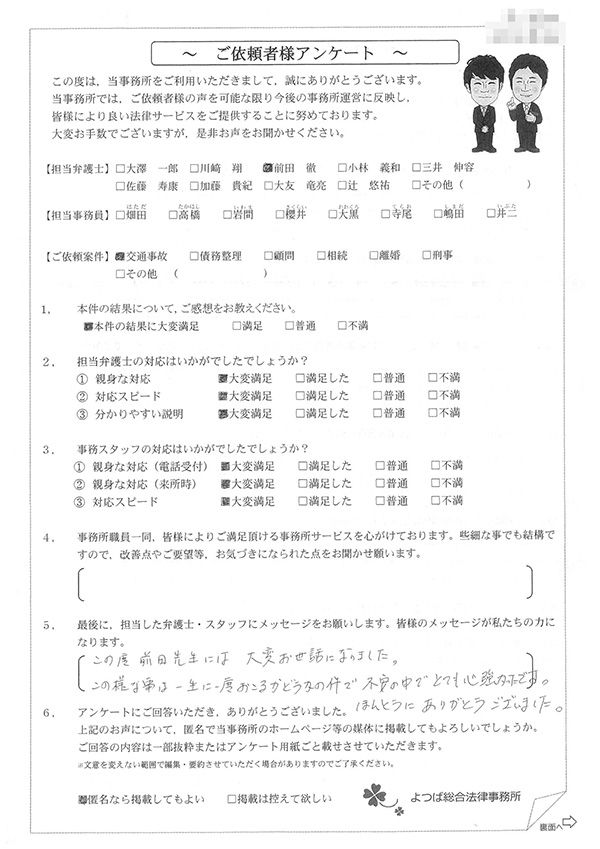 ～ ご依頼者様アンケート ～
この度は，当事務所をご利用いただきまして，誠にありがとうございます。
当事務所では，ご依頼者様の声を可能な限り今後の事務所運営に反映し，
皆様により良い法律サービスをご提供することに努めております。
大変お手数でございますが，是非お声をお聞かせください。
【担当弁護士】□大澤 一郎 □川﨑 翔 ■前田 徹 □小林 義和 □三井 伸容
□佐藤 寿康 □加藤 貴紀 □大友 竜亮 □辻 悠祐 □その他（ ）
はただ たかはし いわま さくらい おおくろ てらお しまだ いぶた
【担当事務員】□畑田 □高橋 □岩間 □櫻井 □大黒 □寺尾 □嶋田 □井二
【ご依頼案件】■交通事故 □債務整理 □顧問 □相続 □離婚 □刑事
□その他 （ ）
1． 本件の結果について，ご感想をお教えください。
■本件の結果に大変満足 □満足 □普通 □不満
2． 担当弁護士の対応はいかがでしたでしょうか？
① 親身な対応 ■大変満足 □満足した □普通 □不満
② 対応スピード ■大変満足 □満足した □普通 □不満
③ 分かりやすい説明 ■大変満足 □満足した □普通 □不満
3． 事務スタッフの対応はいかがでしたでしょうか？
① 親身な対応（電話受付） ■大変満足 □満足した □普通 □不満
② 親身な対応（来所時） ■大変満足 □満足した □普通 □不満
③ 対応スピード ■大変満足 □満足した □普通 □不満
4． 事務所職員一同，皆様によりご満足頂ける事務所サービスを心がけております。些細な事でも結構で
すので，改善点やご要望等，お気づきになられた点をお聞かせ願います。
5． 最後に，担当した弁護士・スタッフにメッセージをお願いします。皆様のメッセージが私たちの力に
なります。
この度 前田先生には 大変お世話になりました。
この様な事は一生に一度おこるかどうかの件で 不安の中でとても心強かったです。
ほんとうに ありがとう ございました。
6． アンケートにご回答いただき，ありがとうございました。
上記のお声について，匿名で当事務所のホームページ等の媒体に掲載してもよろしいでしょうか。
ご回答の内容は一部抜粋またはアンケート用紙ごと載せさせていただきます。
※文意を変えない範囲で編集・要約させていただく場合がありますのでご了承ください。
■匿名なら掲載してもよい □掲載は控えて欲しい よつば総合法律事務所
裏面へ⇨